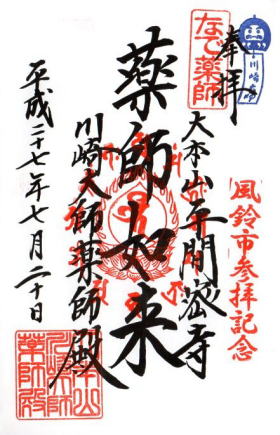 奉拝
川崎
なで薬師
風鈴市参拝記念
大本山平間寺
薬師如来
川崎大師薬師殿
平成二十七年七月二十日
薬師殿